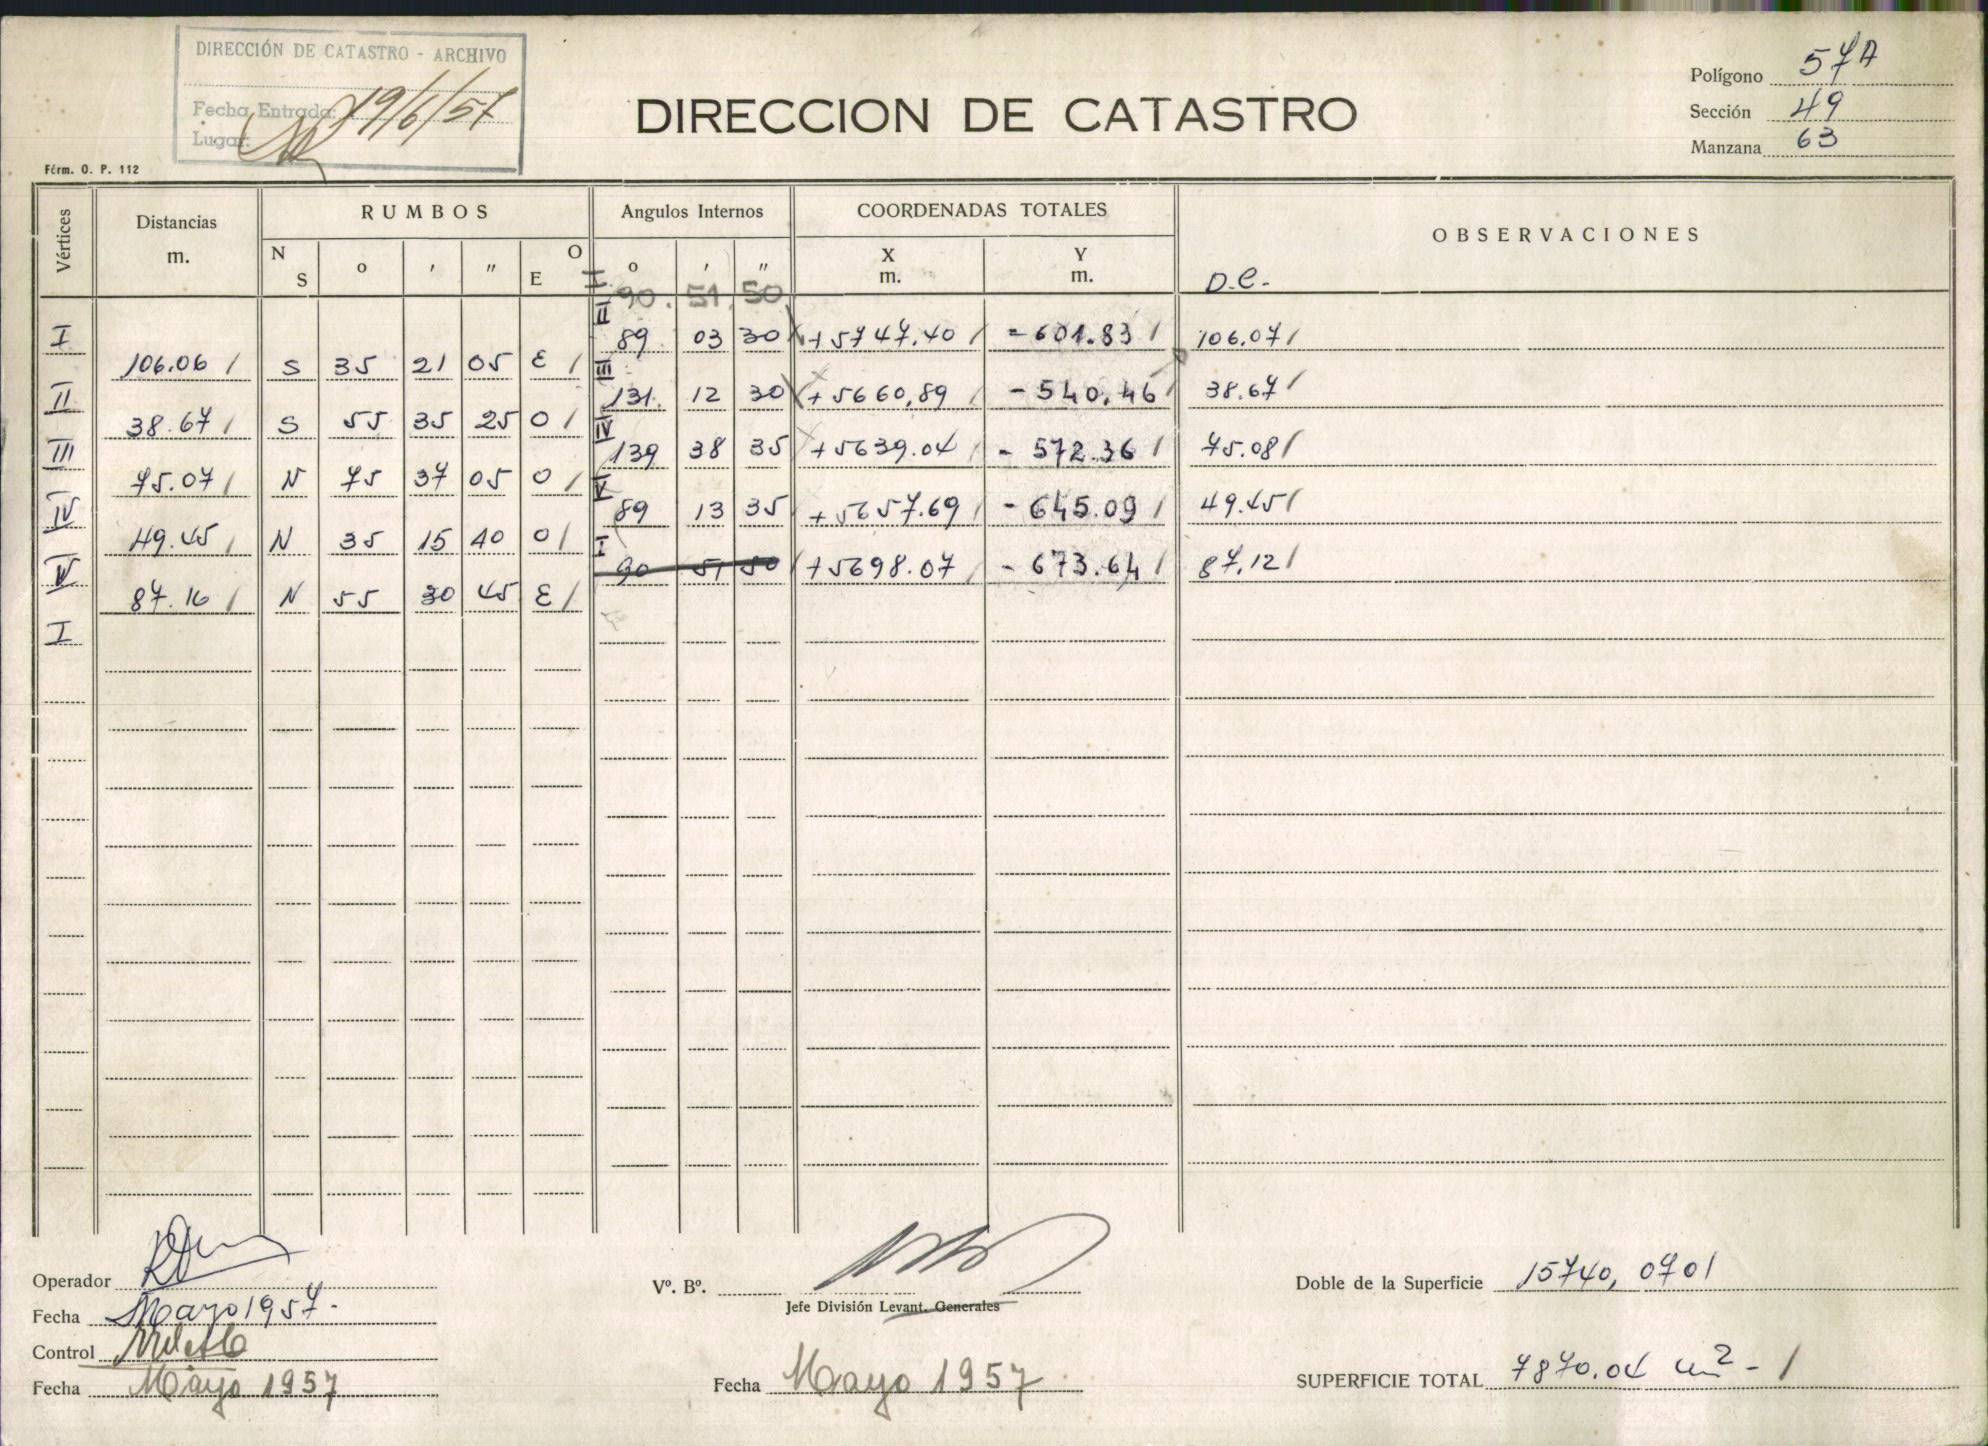 DIRECCIÓN DE CATASTRO - ARCHIVO
Fecha Entrada: 19/6/57
Lugar:
DIRECCION DE CATASTRO
Polígono 57A
Sección 49
Manzana 63
Fórm. O. P. 112
Vértices Distancias m. RUMBOS Angulos Internos COORDENADAS TOTALES OBSERVACIONES
N S o ' " E O o ' " X m. Y m. D.C.
I 90. 51 50
I II 89 03 30 +5747.40 / -601.83 / 106.07 /
106.06 / S 35 21 05 E /
II III 131. 12 30 +5660,89 -540,46 / 38.67 /
38.67 / S 55 35 25 O /
III IV 139 38 35 +5639.04 / -572.36 / 75.08 /
75.07 / N 75 37 05 O /
IV V 89 13 35 +5657.69 / -645.09 / 49.45 /
49.45 / N 35 15 40 O /
V I 90 51 50 +5698.07 / -673.64 / 87.12 /
87.16 / N 55 30 45 E /
I
Operador
Fecha Mayo 1957.
Control
Fecha Mayo 1957
Vº. Bº.
Jefe División Levant. Generales
Fecha Mayo 1957
Doble de la Superficie 15740,0701
SUPERFICIE TOTAL 7870.04 m2 - /